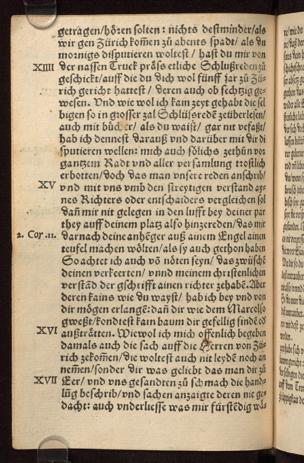 getragen/hören solten: nichts destminder/als
wir gen Zürich komēn zů abents spadt/ als du
mornigs disputieren woltest/ hast du mir von
XIIII der nassen Truck präss etliche Schlußreden zů
geschickt/auff die du dich wol fünff jar zů Zü
rich gericht hattest/ deren auch ob sechtzig ge
wesen. Und wie wol ich kam zeyt gehabt die sel
bigen so in grosser zal Schlüsrede zeüberlesen/
auch mit bůcher/ als du waist/ gar nit gefaßt/
hab ich dennest darauß und darüber mit dir di
sputieren wellen: mich auch sölichs zethůn vor
gantzem Radt und aller versamlung trostlich
erbotten/ doch das man unsere reden anschrib/
XV und mit uns umb den streytigen verstand ay
nes Richters oder entschaiders vergleichen sol
dañ mir nit gelegen in den lufft bey deiner par
they auff deinem platz also hinzereden/ das mir
2. Cor. 11. darnach deine anhēger auß ainem Engel ainen
teufel machen wölten/ als jr auch gethon haben
So achtet ich auch vō nöten seyn/ das zwüschē
deinen verkeerten/ unnd meinem christenlichen
verstād der gschrifft ainen richter zehabē. Aber
deren kains wie du wayst/ hab ich bey und von
dir mögen erlangē: dañ dir wie dem Marcolfo
gweßt/ kondtest kan baum dir gefellig finden
XVI außrätten. Wiewol ich mich offenlich begeben
damals auch die sach auff die Herren von Zü
rich zekomēn/ die woltest auch nit leydē noch an
nemen/ sonder dir was geliebt das man dir zů
XVII Eer/ und uns gesandten zů schmach die hand
lūg beschrib/ und sachen anzaigte deren nie ge
dacht: auch underliesse was mir fürstēdig was